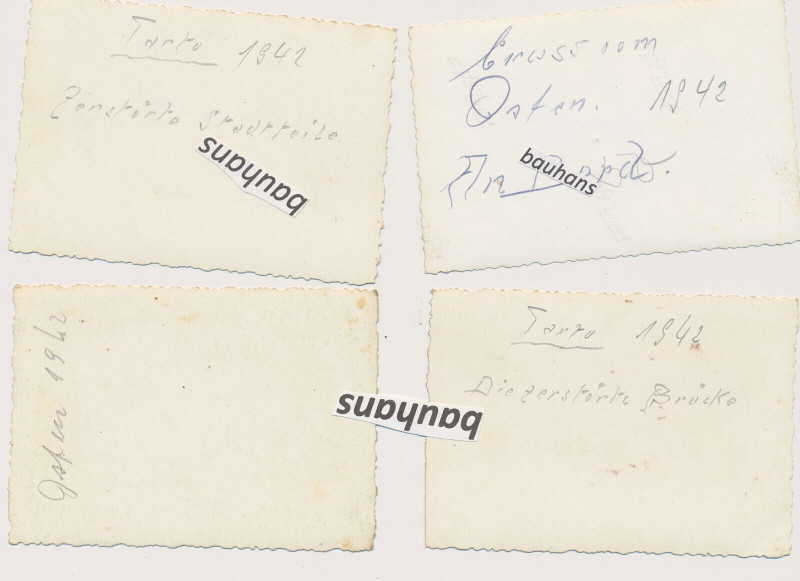 Tartu 1942
Zerstörte Stadtteile
bauhans
Gruss vom
Osten. 1942
An
bauhans
Osten 1942
bauhans
Tartu 1942
Die zerstörte Brücke